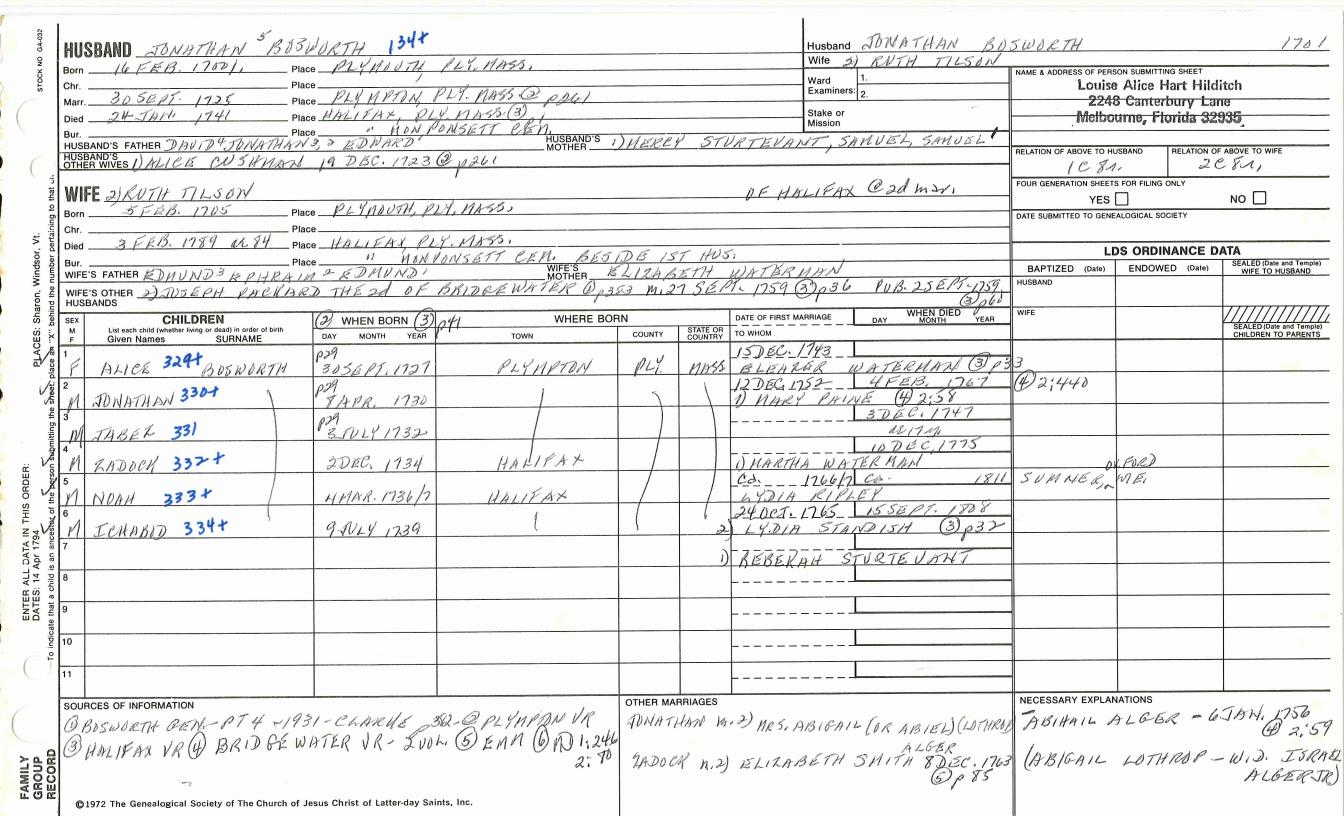 STOCK NO GA-032
HUSBAND JONATHAN 5 BOSWORTH 134+
Born 16 FEB. 1700/1. Place PLYMOUTH, PLY. MASS.
Chr. Place
Marr. 30 SEPT. 1725 Place PLYMPTON, PLY. MASS ② p261
Died 24 JAN. 1741 Place HALIFAX, PLY. MASS. ③
Bur. Place " MONPONSETT CEM.
HUSBAND'S FATHER DAVID 4, JONATHAN 3, 2 EDWARD 1 HUSBAND'S MOTHER 1) MERCY STURTEVANT, SAMUEL, SAMUEL 1
HUSBAND'S OTHER WIVES 1) ALICE CUSHMAN 19 DEC. 1723 ② p261
Husband JONATHAN BOSWORTH 1701
Wife 2) RUTH TILSON
Ward Examiners: 1.
2.
Stake or Mission
NAME & ADDRESS OF PERSON SUBMITTING SHEET
Louise Alice Hart Hilditch
2248 Canterbury Lane
Melbourne, Florida 32935
RELATION OF ABOVE TO HUSBAND RELATION OF ABOVE TO WIFE
1C 8r. 2C 8r,
FOUR GENERATION SHEETS FOR FILING ONLY
YES NO
DATE SUBMITTED TO GENEALOGICAL SOCIETY
WIFE 2) RUTH TILSON OF HALIFAX @ 2d mar.
Born 5 FEB. 1705 Place PLYMOUTH, PLY. MASS.
Chr. Place
Died 3 FEB. 1789 ae 84 Place HALIFAX, PLY. MASS.
Bur. Place " MONPONSETT CEM. BESIDE 1ST HUS.
WIFE'S FATHER EDMUND 3 EPHRAIM 2 EDMUND 1 WIFE'S MOTHER ELIZABETH WATERMAN
WIFE'S OTHER HUSBANDS 2) JOSEPH PACKARD THE 2d OF BRIDGEWATER ① p353 m. 27 SEPT. 1759 ③ p36 PUB. 2 SEPT. 1759
③ p60
LDS ORDINANCE DATA
BAPTIZED (Date) ENDOWED (Date) SEALED (Date and Temple) WIFE TO HUSBAND
HUSBAND
WIFE
SEALED (Date and Temple) CHILDREN TO PARENTS
SEX M F CHILDREN ② WHEN BORN ③ p41 WHERE BORN DATE OF FIRST MARRIAGE WHEN DIED
List each child (whether living or dead) in order of birth
Given Names SURNAME DAY MONTH YEAR TOWN COUNTY STATE OR COUNTRY TO WHOM DAY MONTH YEAR
1 p29 15 DEC. 1743
F ALICE 329+ BOSWORTH 30 SEPT. 1727 PLYMPTON PLY. MASS ELEAZER WATERMAN ③ p33
2 p29 12 DEC. 1752 4 FEB. 1767 ④ 2:440
M JONATHAN 330+ 8 APR. 1730 1) MARY PAINE ④ 2:58
3 p29 3 DEC. 1747
M JABEZ 331 3 JULY 1732
4 10 DEC, 1775
M ZADOCK 332+ 2 DEC. 1734 HALIFAX 1) MARTHA WATERMAN
5 Ca. 1766/7 Ca. 1811 SUMNER, OXFORD ME.
M NOAH 333+ 4 MAR. 1736/7 HALIFAX LYDIA RIPLEY
6 24 OCT. 1765 15 SEPT. 1808
M ICHABOD 334+ 9 JULY 1739 2) LYDIA STANDISH ③ p32
7
1) REBEKAH STURTEVANT
8
9
10
11
SOURCES OF INFORMATION
① BOSWORTH GEN - PT 4 - 1931 - CLARKE ② PLYMPTON VR
③ HALIFAX VR ④ BRIDGEWATER VR - 2 VOL. ⑤ EMM ⑥ 1:246
2:70
OTHER MARRIAGES
JONATHAN m. 2) MRS. ABIGAIL (OR ABIEL) (LOTHROP
ALGER
ZADOCK m. 2) ELIZABETH SMITH 8 DEC. 1763
⑤ p 85
NECESSARY EXPLANATIONS
ABIHAIL ALGER - 6 JAN. 1756
④ 2:59
(ABIGAIL LOTHROP - WID. ISRAEL
ALGER JR)
©1972 The Genealogical Society of The Church of Jesus Christ of Latter-day Saints, Inc.
FAMILY GROUP RECORD
ENTER ALL DATA IN THIS ORDER:
DATES: 14 Apr 1794 PLACES: Sharon, Windsor, Vt.
To indicate that a child is an ancestor of the person submitting the sheet, place an "X" behind the number pertaining to that